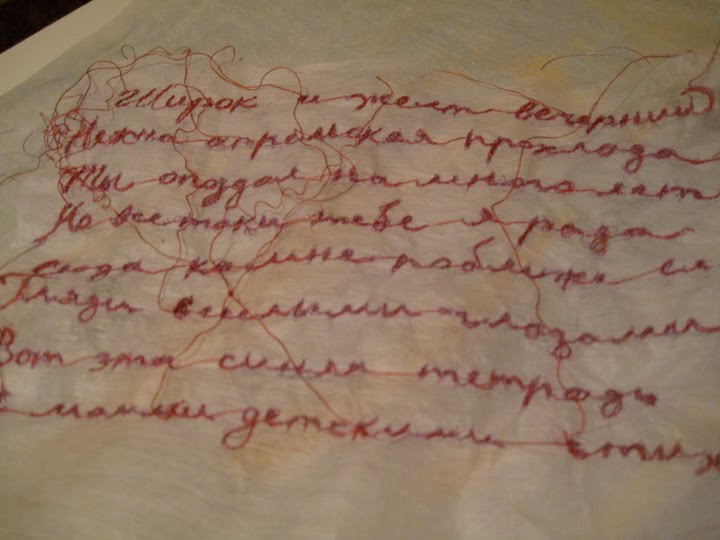 Широк и желт вечерний
Нежна апрельская прохлада
Ты опоздал на много лет
Но все таки тебе я рада
сюда ко мне поближе ся
Гляди веселыми глазами
Вот эта синяя тетрадь
С моими детскими стих